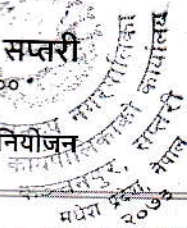 सप्तरी
००
नियोजन
नगरपालिका
कार्यपालिकाको कार्यालय
सप्तरी
मधेश प्रदेश, नेपाल
२०७३